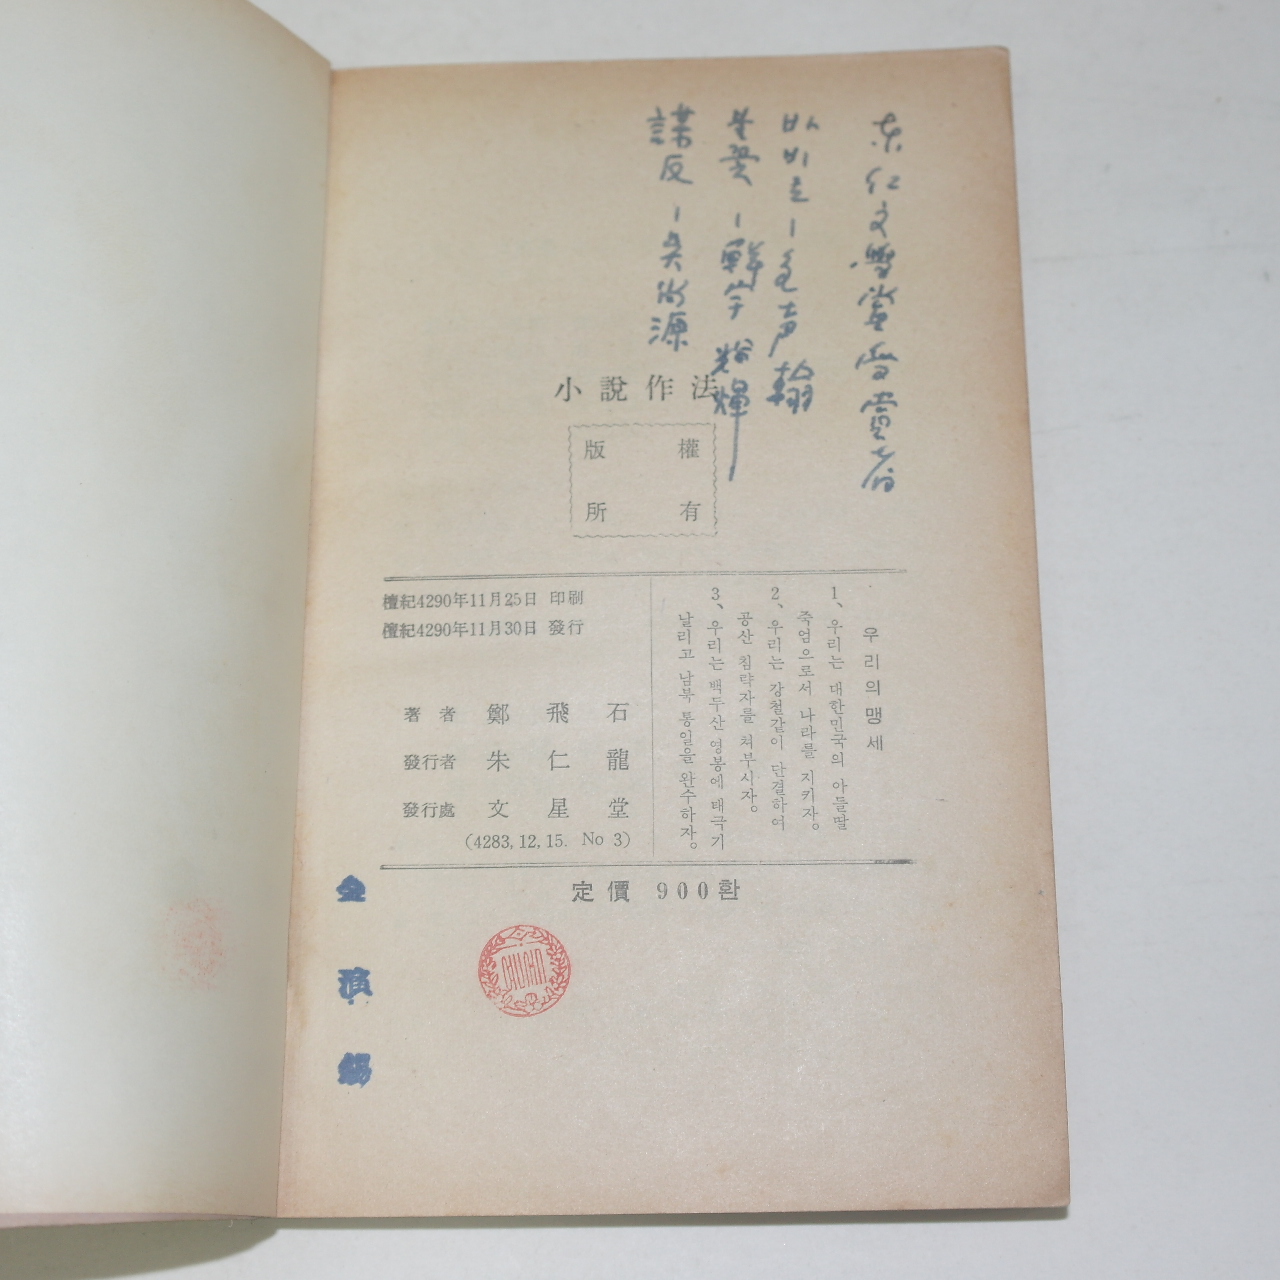 東仁文學賞受賞者
바비도 — 金声翰
불꽃 — 鮮宇 煇
謀反 — 吳尙源
小說作法
版權
所有
우리의 맹세
1、우리는 대한민국의 아들딸
죽엄으로서 나라를 지키자。
2、우리는 강철같이 단결하여
공산 침략자를 쳐부시자。
3、우리는 백두산 영봉에 태극기
날리고 남북 통일을 완수하자。
檀紀4290年11月25日 印刷
檀紀4290年11月30日 發行
著者 鄭飛石
發行者 朱仁龍
發行處 文星堂
(4283, 12, 15. No 3)
定價 900환
金